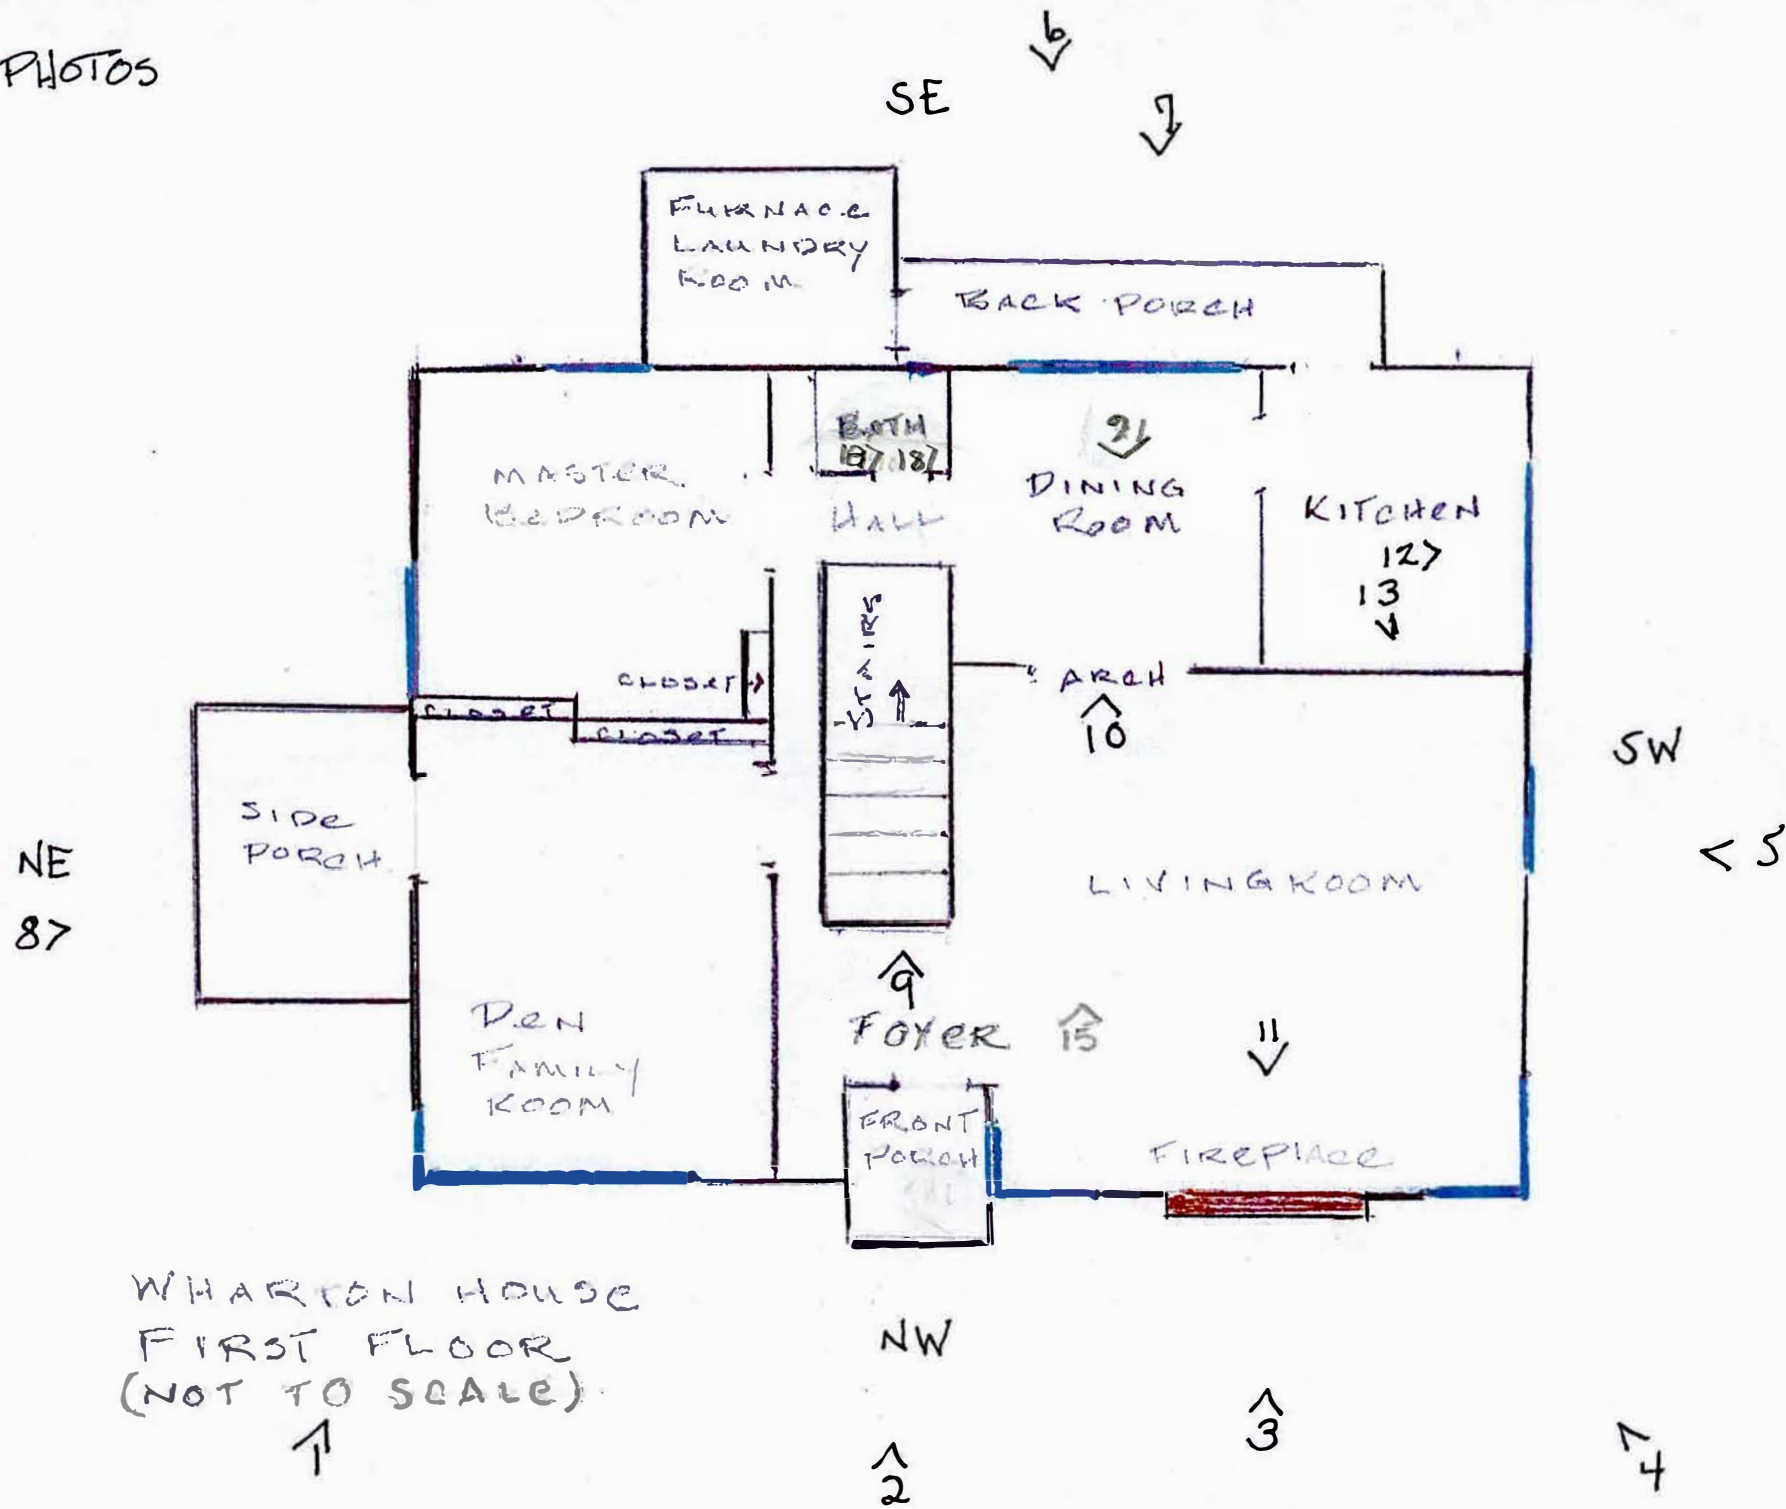 PHOTOS
6
SE
7
FURNACE
LAUNDRY
ROOM
BACK PORCH
BATH
18>
MASTER
BEDROOM
HALL
DINING
ROOM
KITCHEN
12>
13
STAIRS
CLOSET
CLOSET
CLOSET
ARCH
10
SW
SIDE
PORCH
NE
8>
< 5
LIVINGROOM
9
FOYER
15
11
DEN
FAMILY
ROOM
FRONT
PORCH
FIREPLACE
WHARTON HOUSE
FIRST FLOOR
(NOT TO SCALE)
NW
1
2
3
4